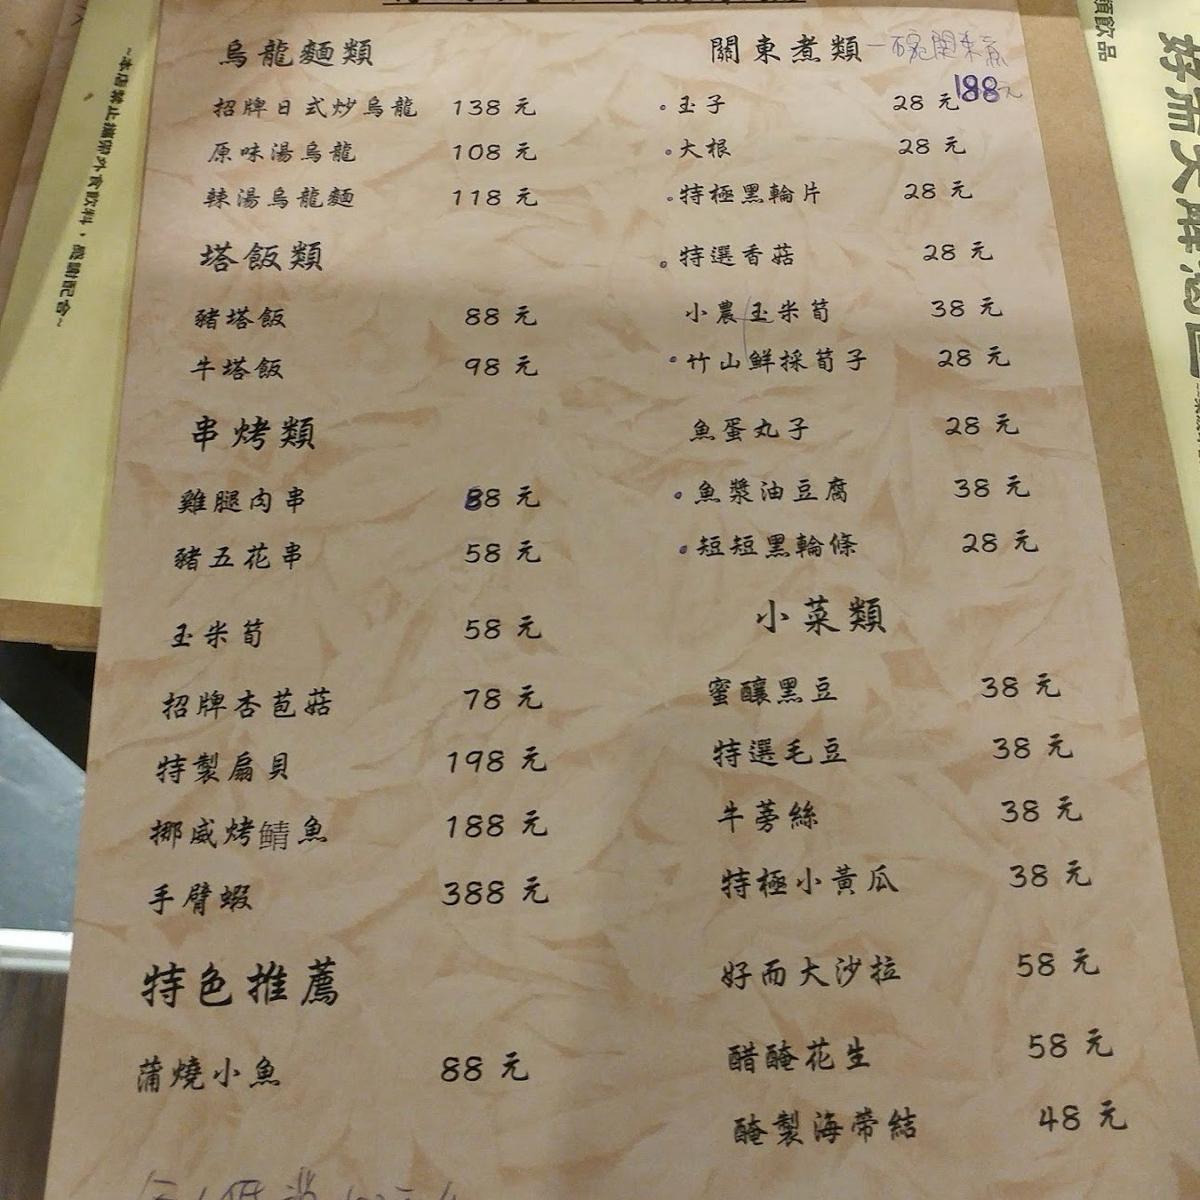 烏龍麵類
招牌日式炒烏龍 138 元
原味湯烏龍 108 元
辣湯烏龍麵 118 元
塔飯類
豬塔飯 88 元
牛塔飯 98 元
串烤類
雞腿肉串 88 元
豬五花串 58 元
玉米筍 58 元
招牌杏苞菇 78 元
特製扇貝 198 元
挪威烤鯖魚 188 元
手臂蝦 388 元
特色推薦
蒲燒小魚 88 元
關東煮類 一碗關東煮
188元
玉子 28 元
大根 28 元
特極黑輪片 28 元
特選香菇 28 元
小農玉米筍 38 元
竹山鮮採筍子 28 元
魚蛋丸子 28 元
魚漿油豆腐 38 元
短短黑輪條 28 元
小菜類
蜜釀黑豆 38 元
特選毛豆 38 元
牛蒡絲 38 元
特極小黃瓜 38 元
好而大沙拉 58 元
醋醃花生 58 元
醃製海帶結 48 元
~本店禁止攜帶外食飲料，感謝配合~
類飲品
好而大